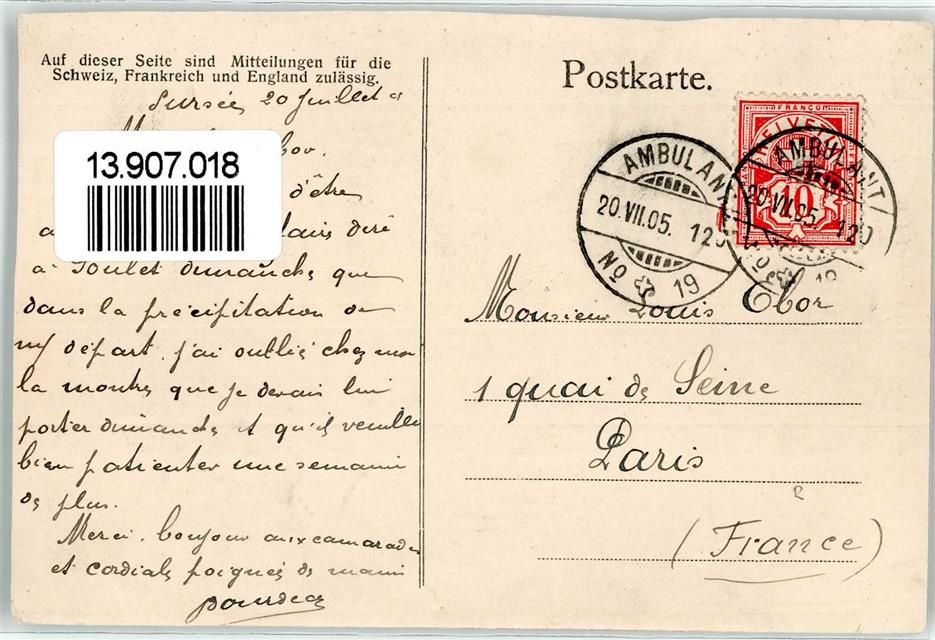 Auf dieser Seite sind Mitteilungen für die
Schweiz, Frankreich und England zulässig.
Postkarte.
Sursée 20 Juillet
13.907.018
d'être
dire
à Poulet dimanche que
dans la précipitation de
départ, j'ai oublié chez moi
la montre que je devais lui
porter dimanche et qu'il veuille
bien patienter une semaine
de plus.
Merci, bonjour aux camarades
et cordiale poignée de main
FRANCO
HELVETIA
10
AMBULANT
20.VII.05. 12
No 19
AMBULANT
20.VII.05. 120
No 19
Monsieur Louis Obor
1 quai de Seine
Paris
(France)